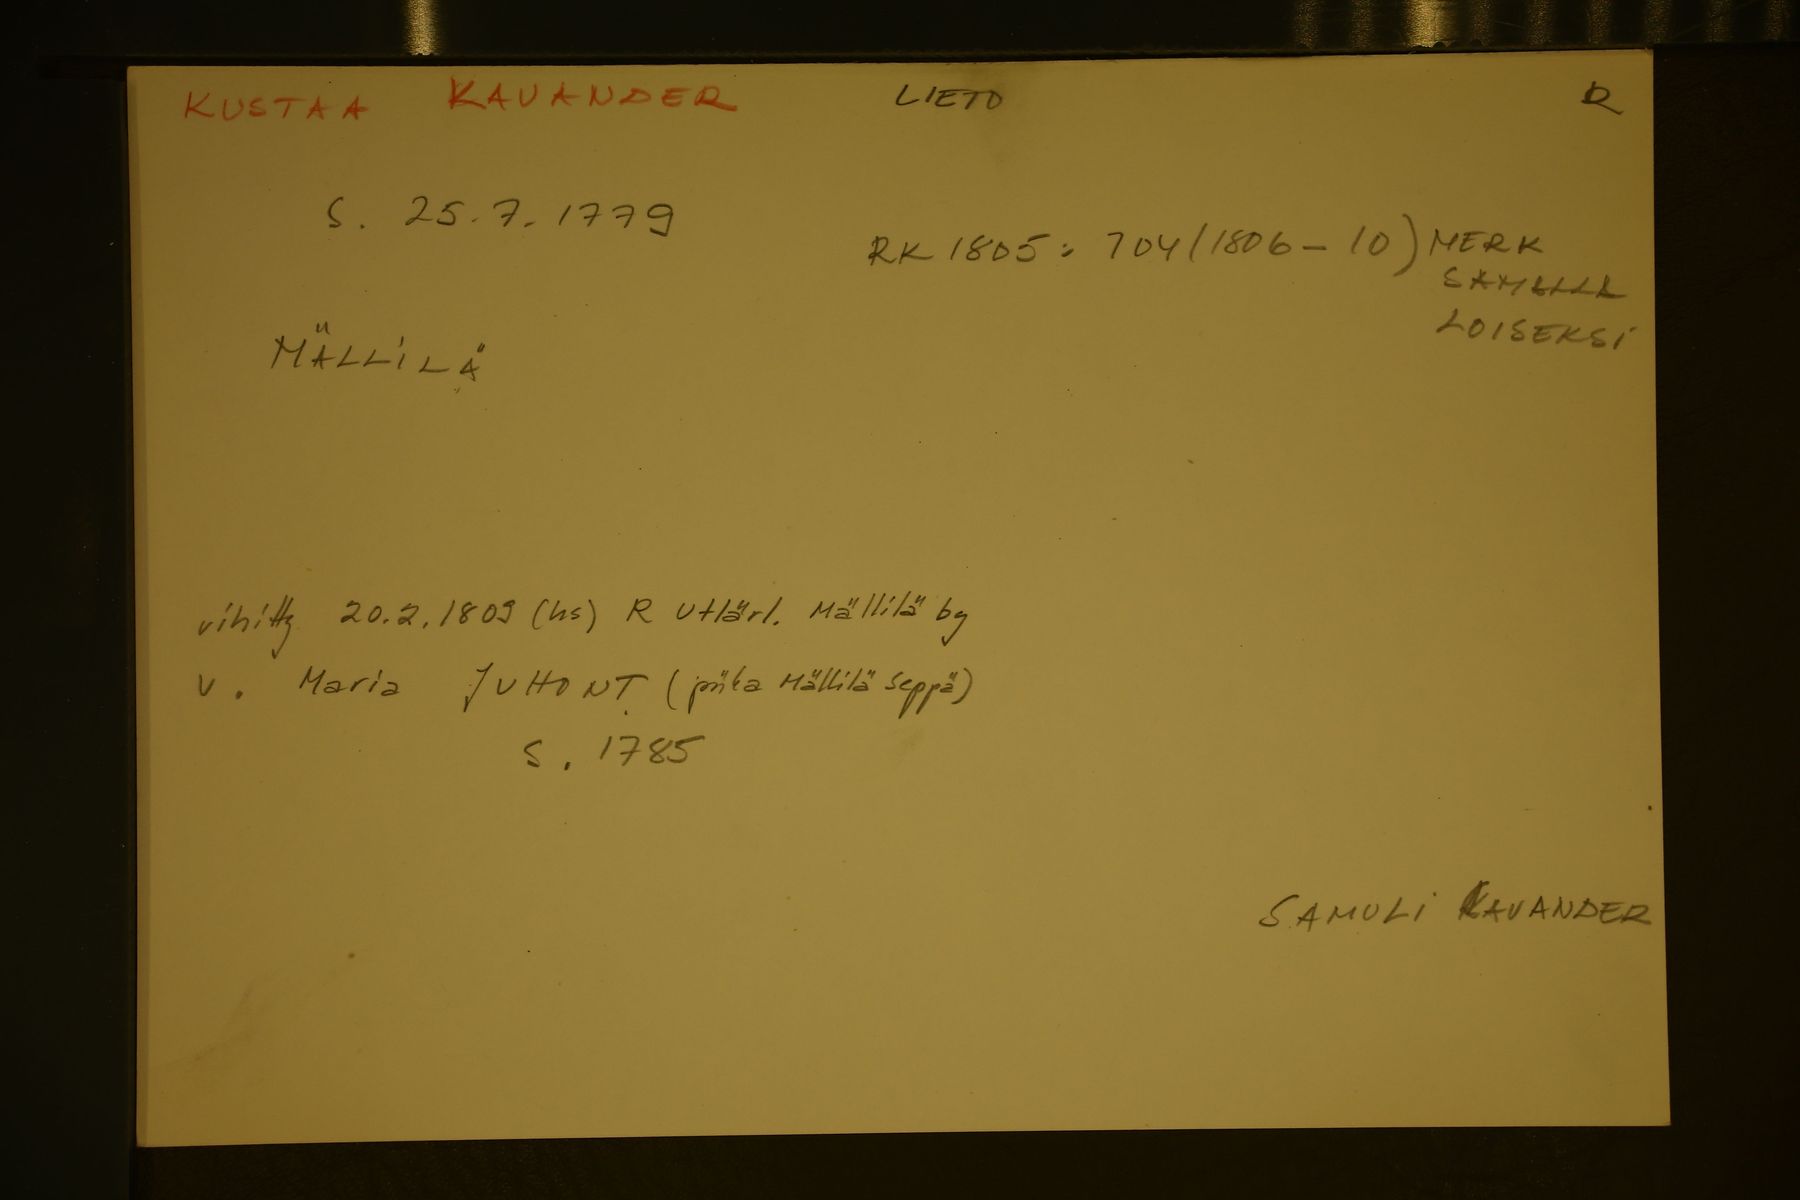 KUSTAA KAVANDER LIETO R
S. 25.7.1779
RK 1805: 704 (1806-10) MERK
LOISEKSI
MÄLLILÄ
vihitty 20.2.1809 (hs) R Utlärl. Mällilä by
v. Maria JUHONT. (piika Mällilä Seppä)
S. 1785
SAMULI KAVANDER